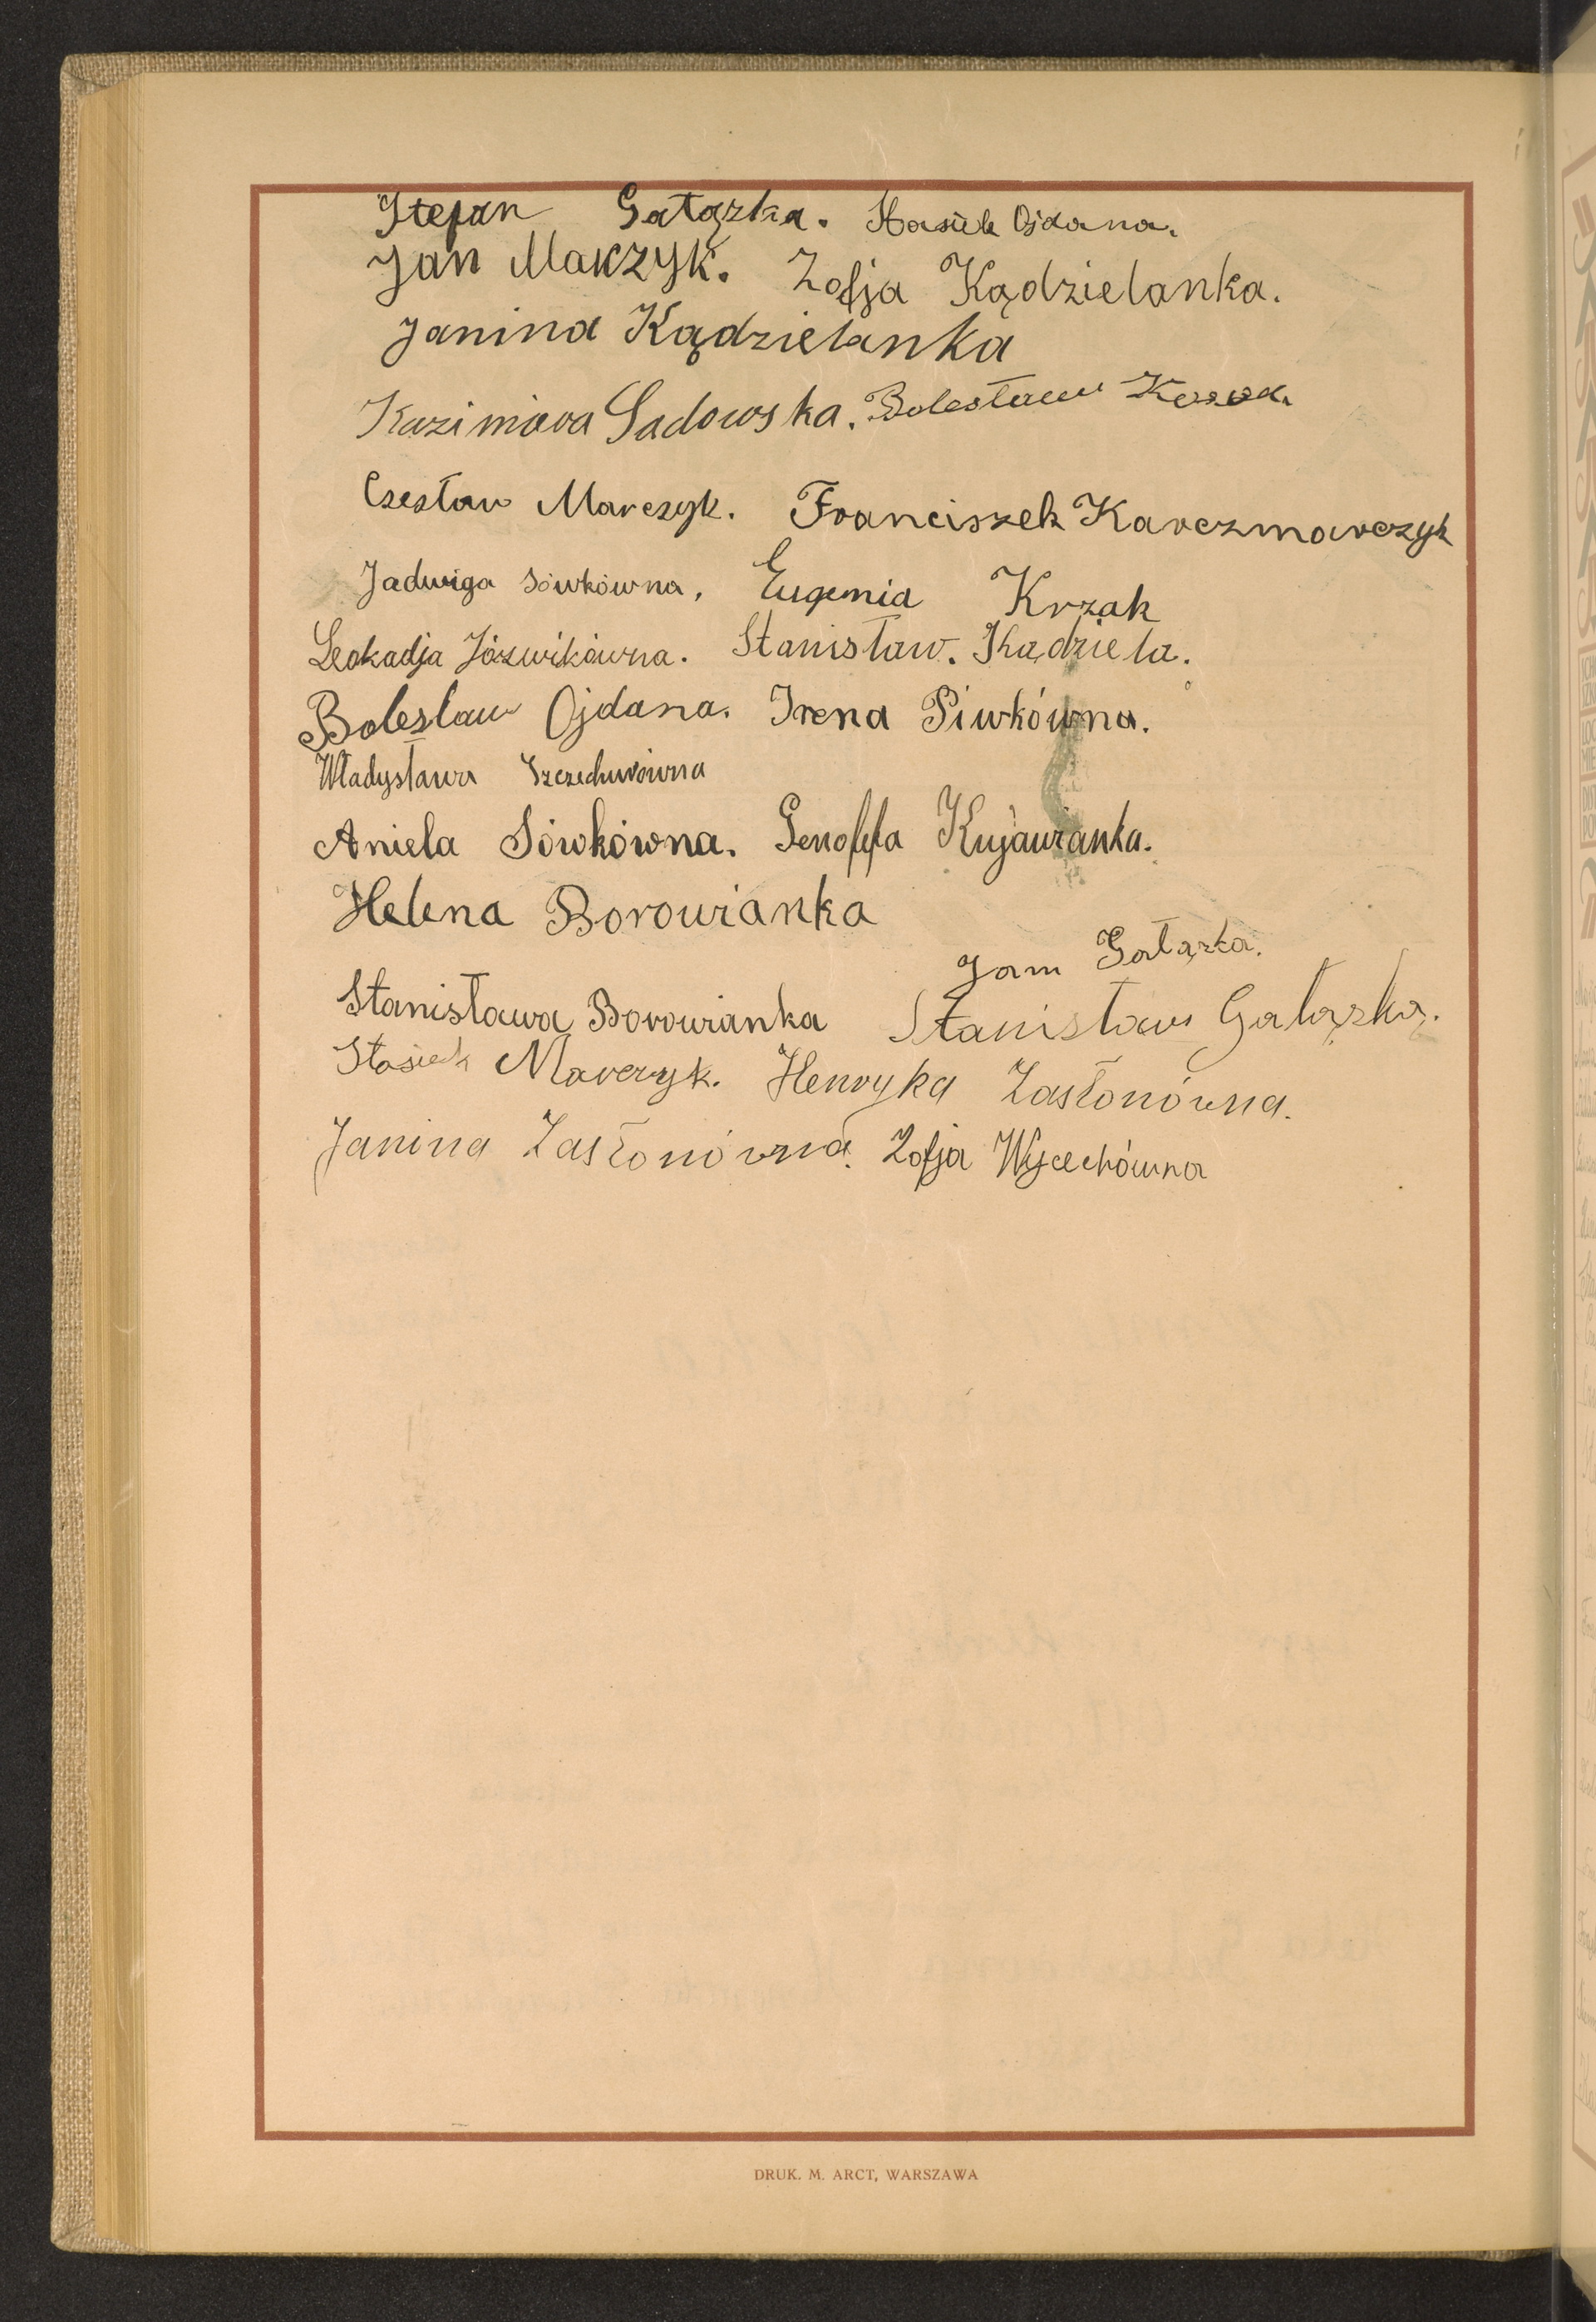 Stefan Gałązka. Stasiek Ojdana.
Jan Makzyk. Zofja Kądzielanka.
Janina Kądzielanka
Kazimiera Sadowska. Bolesław
Czesław Marczyk. Franciszek Karczmarczyk
Jadwiga Sówkówna, Eugenia Krzak
Leokadja Józwikówna. Stanisław. Kądziela.
Boleslaw Ojdana. Irena Piwkówna.
Władysława
Aniela Sówkówna. Genoffa Kujawianka.
Helena Borowianka
Jan Gałązka.
Stanisława Borowianka Stanisław Gałązka.
Stasiek Marczyk. Henryka Zasłonówna.
Janina Zasłonówna. Zofja Wyciechówna
DRUK. M. ARCT, WARSZAWA